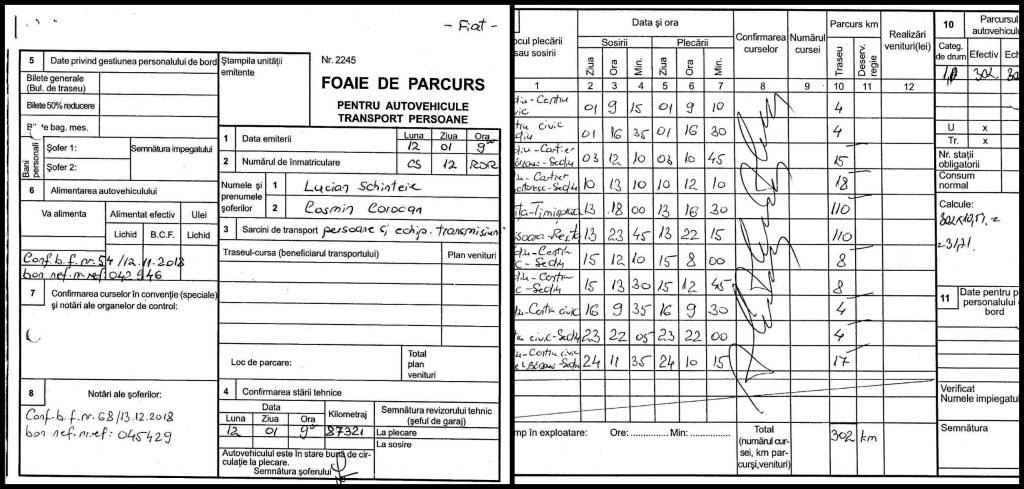 - Fiat -
5 Date privind gestiunea personalului de bord
Bilete generale
(Bul. de traseu)
Bilete 50% reducere
bag. mes.
Bani personali
Șofer 1:
Semnătura impegatului
Șofer 2:
6 Alimentarea autovehiculului
Va alimenta
Alimentat efectiv
Ulei
Lichid
B.C.F.
Lichid
Conf. b.f. nr. 54/12.11.2018
bon nef. nr. ref: 042946
7 Confirmarea curselor în convenție (speciale)
și notări ale organelor de control:
8 Notări ale șoferilor:
Conf. b.f. nr. 68/13.12.2018
bon nef. nr. ref: 045429
Ștampila unității
emitente
Nr. 2245
FOAIE DE PARCURS
PENTRU AUTOVEHICULE
TRANSPORT PERSOANE
1 Data emiterii
Luna Ziua Ora
12 01 9
2 Numărul de înmatriculare
CS 12 RDR
Numele și
prenumele
șoferilor
1 Lucian Schinteie
2 Cosmin Corocan
3 Sarcini de transport persoane și echip. transmisiuni
Traseul-cursa (beneficiarul transportului)
Plan venituri
Loc de parcare:
Total
plan
venituri
4 Confirmarea stării tehnice
Data
Luna Ziua Ora
Kilometraj
Semnătura revizorului tehnic
(șeful de garaj)
12 01 9 87321
La plecare
La sosire
Autovehiculul este în stare bună de cir-
culație la plecare.
Semnătura șoferului
ocul plecării
sau sosirii
Data și ora
Sosirii
Plecării
Ziua Ora Min. Ziua Ora Min.
Confirmarea
curselor
Numărul
cursei
Parcurs km
Traseu
Deserv. regie
Realizări
venituri(lei)
1 2 3 4 5 6 7 8 9 10 11 12
diu-Centru
vic 01 9 15 01 9 10 4
tru civic
diu 01 16 35 01 16 30 4
diu-Cartier
-Sediu 03 12 10 03 10 45 15
diu-Cartier
-Sediu 10 13 10 10 12 10 18
ita-Timișoara 13 18 00 13 16 30 110
ișoara-Reșita 13 23 45 13 22 15 110
diu-Centru
c-Sediu 15 12 10 15 8 00 8
diu-Centru
c-Sediu 15 13 30 15 12 45 8
diu-Centru civic 16 9 35 16 9 30 4
tru civic-Sediu 23 22 05 23 22 00 4
diu-Centru civic
-Sediu 24 11 35 24 10 15 17
mp în exploatare: Ore: ............ Min: ............
Total
(numărul cur-
sei, km par-
curși,venituri)
302 km
10 Parcursul
autovehiculu
Categ.
de drum
Efectiv
Ech
302 302
U x
Tr. x
Nr. stații
obligatorii
Consum
normal
Calcule:
302x10,51 =
=31,71
11 Date pentru p
personalului
bord
Verificat
Numele impiegatu
Semnătura